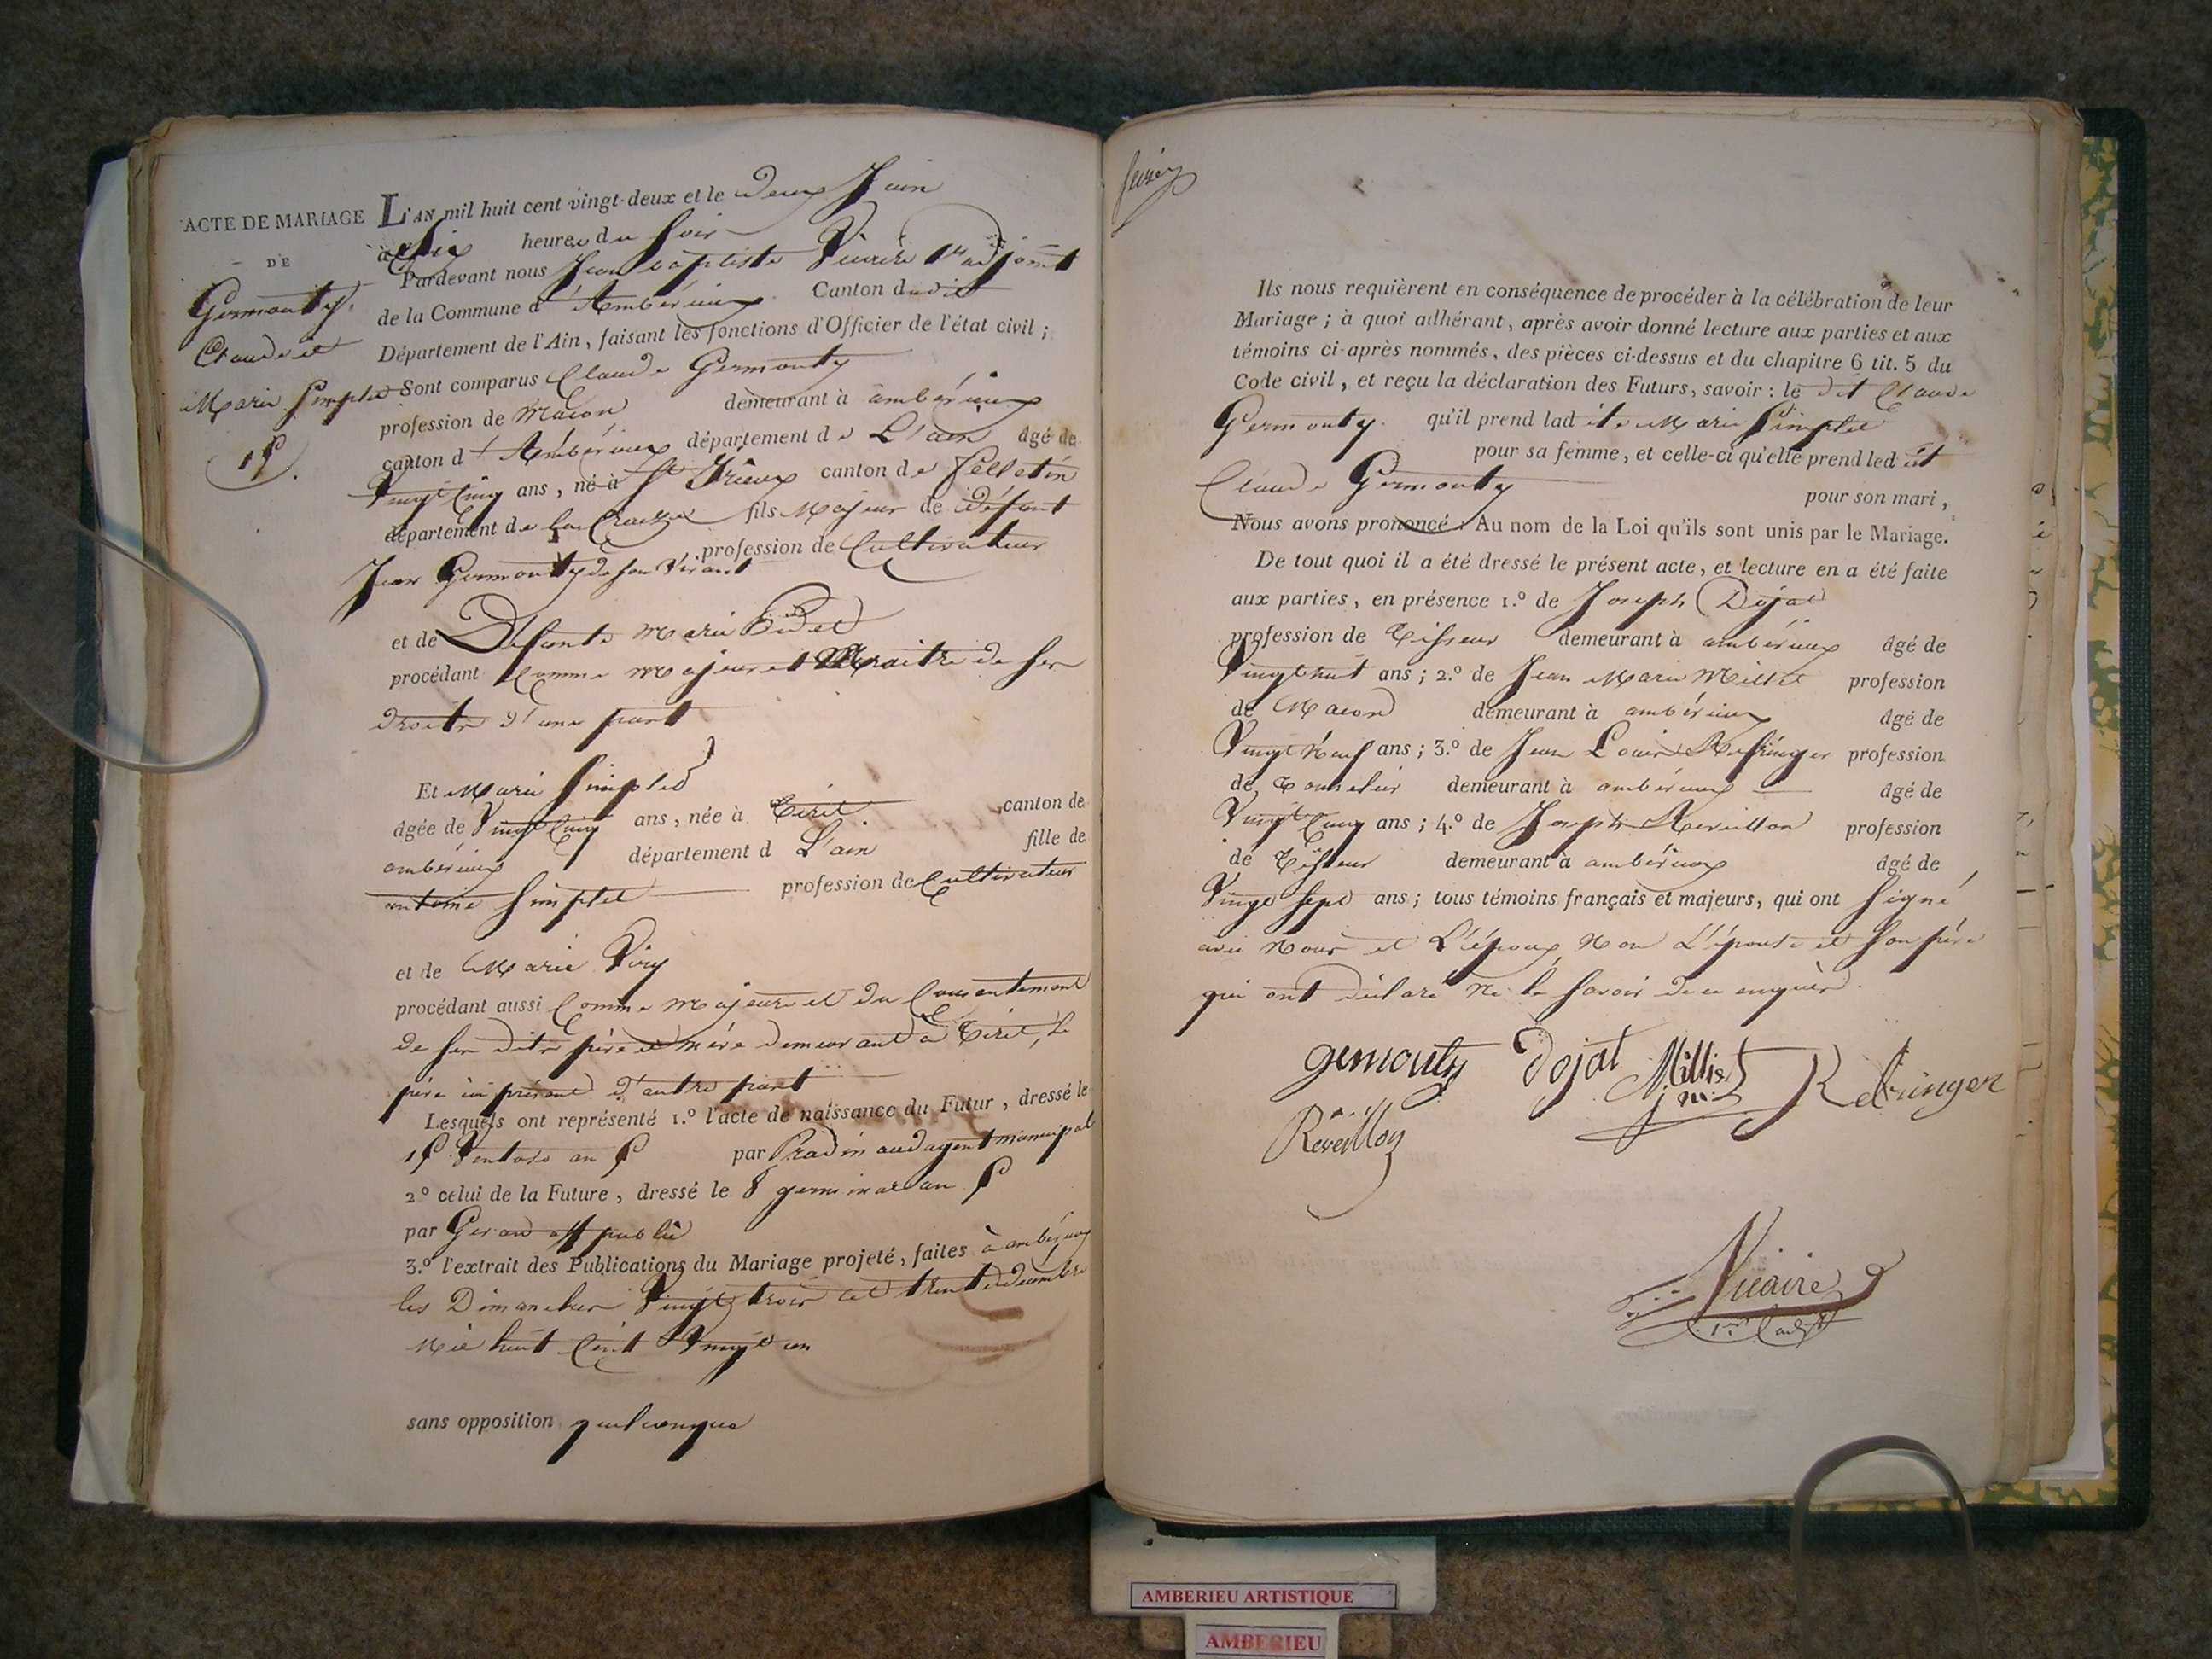 ACTE DE MARIAGE
DE
Germouty
Claude et
Marie Simplet
15.
L'AN mil huit cent vingt-deux et le deux Juin
à Six heures du Soir
Pardevant nous Jean baptiste Vicaire 1er adjoint
de la Commune d'Ambérieux Canton dudit
Département de l'Ain, faisant les fonctions d'Officier de l'état civil;
Sont comparus Claude Germouty
profession de Macon demeurant à ambérieux
canton d'Ambérieux département de L'ain âgé de
Vingt Cinq ans, né à St Yrieux canton de felletin
département de la Creuze fils Majeur de défunt
Jean Germouty de son Vivant profession de Cultivateur
et de Défunte Marie
procédant Comme Majeur et Maitre de Ses
droits d'une part
Et Marie Simplet
âgée de Vingt Cinq ans, née à Tiret canton de
ambérieux département d L'ain fille de
antoine Simplet profession de Cultivateur
et de Marie Viry
procédant aussi Comme Majeure et du Consentement
de Ses dits père et mère demeurant à Tiret, le
père ici présent d'autre part
Lesquels ont représenté 1.º l'acte de naissance du Futur, dressé le
15 Ventose an 5 par Pradin agent municipal
2º celui de la Future, dressé le 8 germinal an 5
par off public
3.º l'extrait des Publications du Mariage projeté, faites à ambérieux
les Dimanches Vingt trois et trente décembre
Mil huit Cent Vingt un
sans opposition quelconque
Ils nous requièrent en conséquence de procéder à la célébration de leur
Mariage; à quoi adhérant, après avoir donné lecture aux parties et aux
témoins ci-après nommés, des pièces ci-dessus et du chapitre 6 tit. 5 du
Code civil, et reçu la déclaration des Futurs, savoir: le dit Claude
Germouty qu'il prend ladite Marie Simplet
pour sa femme, et celle-ci qu'elle prend ledit
Claude Germouty pour son mari,
Nous avons prononcé: Au nom de la Loi qu'ils sont unis par le Mariage.
De tout quoi il a été dressé le présent acte, et lecture en a été faite
aux parties, en présence 1.º de Joseph Dojat
profession de Tisseur demeurant à ambérieux âgé de
Vingt huit ans; 2.º de Jean Marie Millet profession
de Macon demeurant à ambérieux âgé de
Vingt Neuf ans; 3.º de Jean Louis Refringer profession
de Tonnelier demeurant à ambérieux âgé de
Vingt Cinq ans; 4.º de Joseph Reveillon profession
de Tisseur demeurant à ambérieux âgé de
Vingt Sept ans; tous témoins français et majeurs, qui ont Signé
avec Nous et L'époux, Non L'épouse et Son père
qui ont déclaré Ne le Savoir de ce enquis.
gemouty Dojat Milliet Refringer
j m
Reveillon
Vicaire
1er adjt
AMBERIEU ARTISTIQUE
AMBERIEU